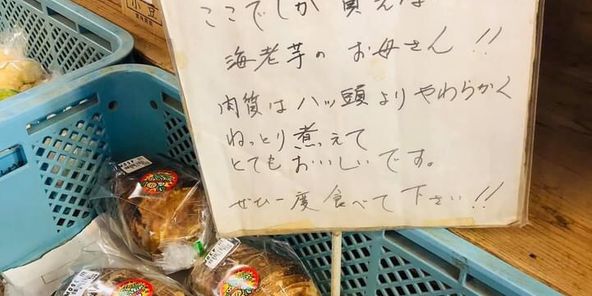 小豆
ここでしか買えない
海老芋のお母さん!!
肉質は八ッ頭よりやわらかく
ねっとり煮えて
とてもおいしいです。
ぜひ一度食べて下さい!!